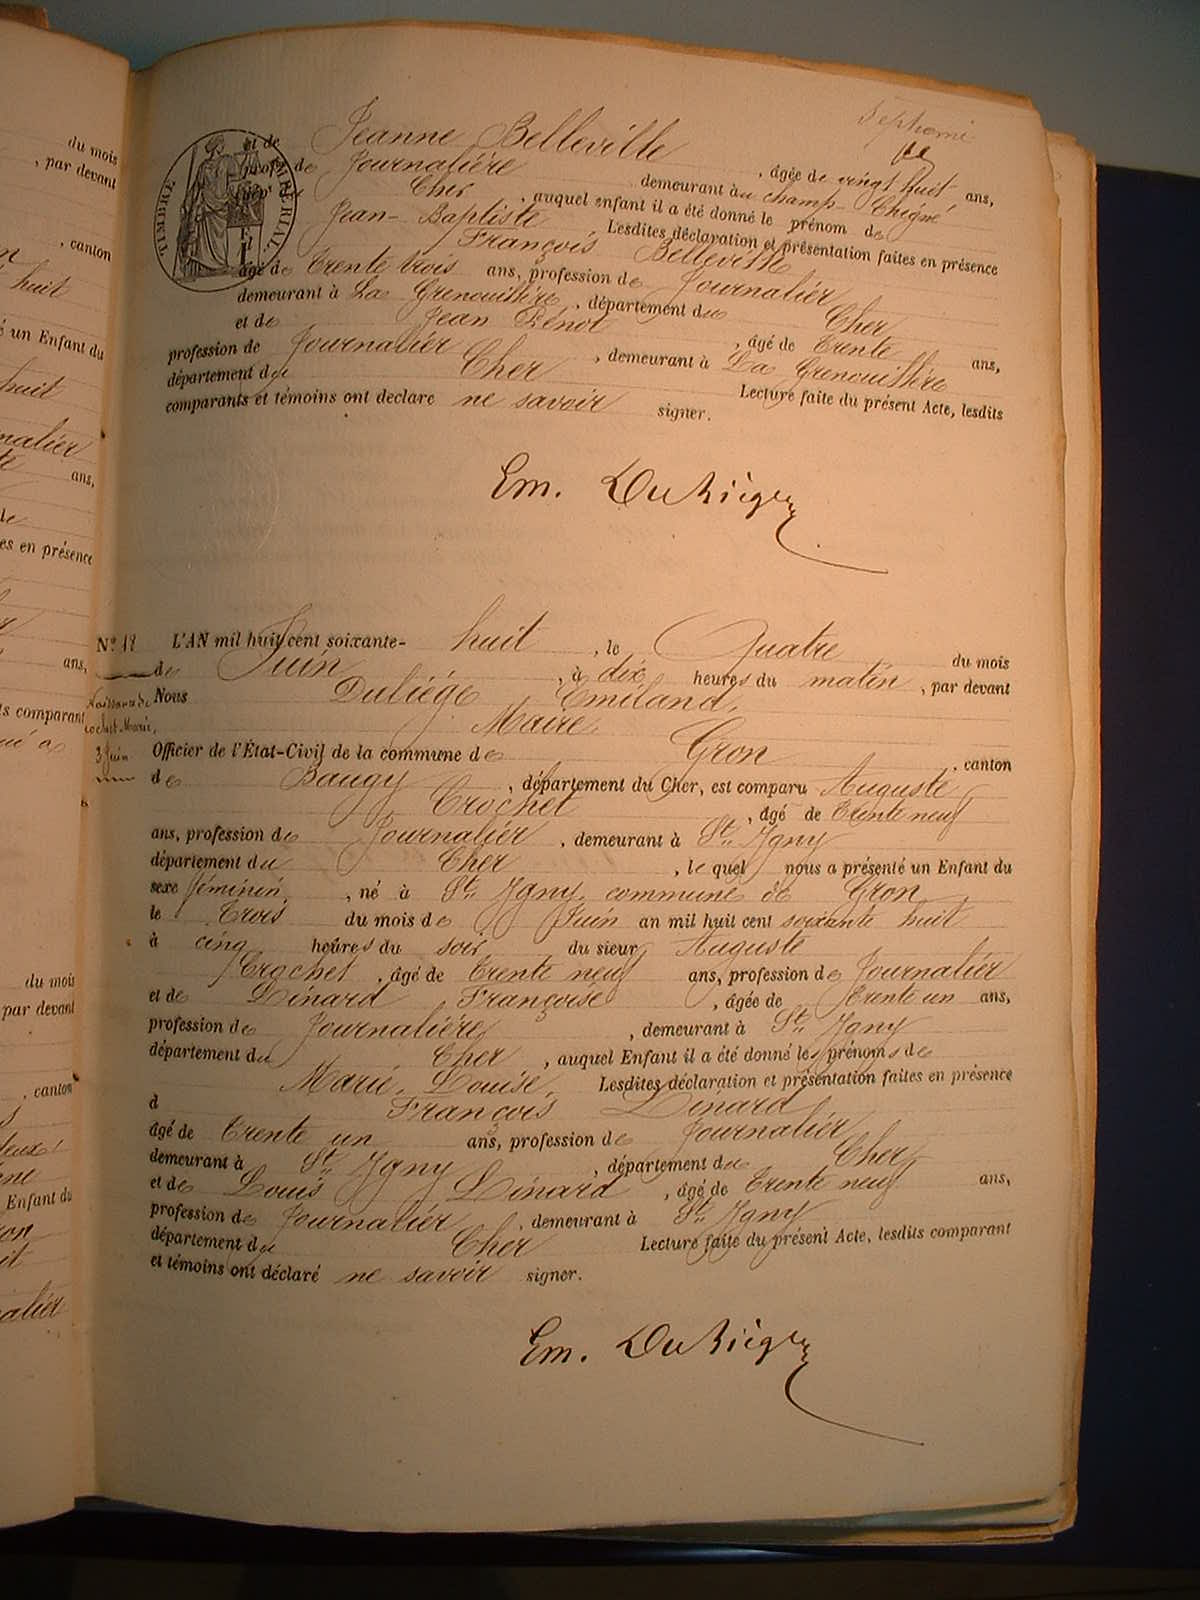 du mois
, par devant
, canton
huit
é un Enfant du
huit
nalier
ans,
es en présence
ans,
ts comparant
du mois
par devant
, canton
Enfant du
alier
Septième
TIMBRE IMPÉRIAL
et de Jeanne Belleville , âgée de vingt huit ans,
prof. de Journalière demeurant à au champ-Chigné
dép. Cher , auquel enfant il a été donné le prénom de
Jean-Baptiste Lesdites déclaration et présentation faites en présence
François Belleville
âgé de trente trois ans, profession de Journalier
demeurant à La Grenouillère , département du Cher
et de Jean Pénot , âgé de trente ans,
profession de Journalier , demeurant à La Grenouillère
département du Cher Lecture faite du présent Acte, lesdits
comparants et témoins ont déclaré ne savoir signer.
Em. Duliège
N° 18 L'AN mil huit cent soixante- huit , le Quatre du mois
de Juin , à dix heures du matin , par devant
Nous Duliége Emiland,
Maire
Naissance de
Crochet Marie,
3 Juin
Officier de l'État-Civil de la commune de Gron , canton
de Baugy , département du Cher, est comparu Auguste
Crochet , âgé de trente neuf
ans, profession de Journalier , demeurant à St Igny
département du Cher , le quel nous a présenté un Enfant du
sexe féminin , né à St Igny, commune de Gron
le trois du mois de Juin an mil huit cent soixante huit
à cinq heures du soir du sieur Auguste
Crochet , âgé de trente neuf ans, profession de Journalier
et de Dinard Françoise , âgée de trente un ans,
profession de Journalière , demeurant à St Igny
département du Cher , auquel Enfant il a été donné les prénoms de
Marie, Louise, Lesdites déclaration et présentation faites en présence
d François Dinard
âgé de trente un ans, profession de Journalier
demeurant à St Igny , département du Cher
et de Louis Dinard , âgé de trente neuf ans,
profession de Journalier , demeurant à St Igny
département du Cher Lecture faite du présent Acte, lesdits comparant
et témoins ont déclaré ne savoir signer.
Em. Duliège